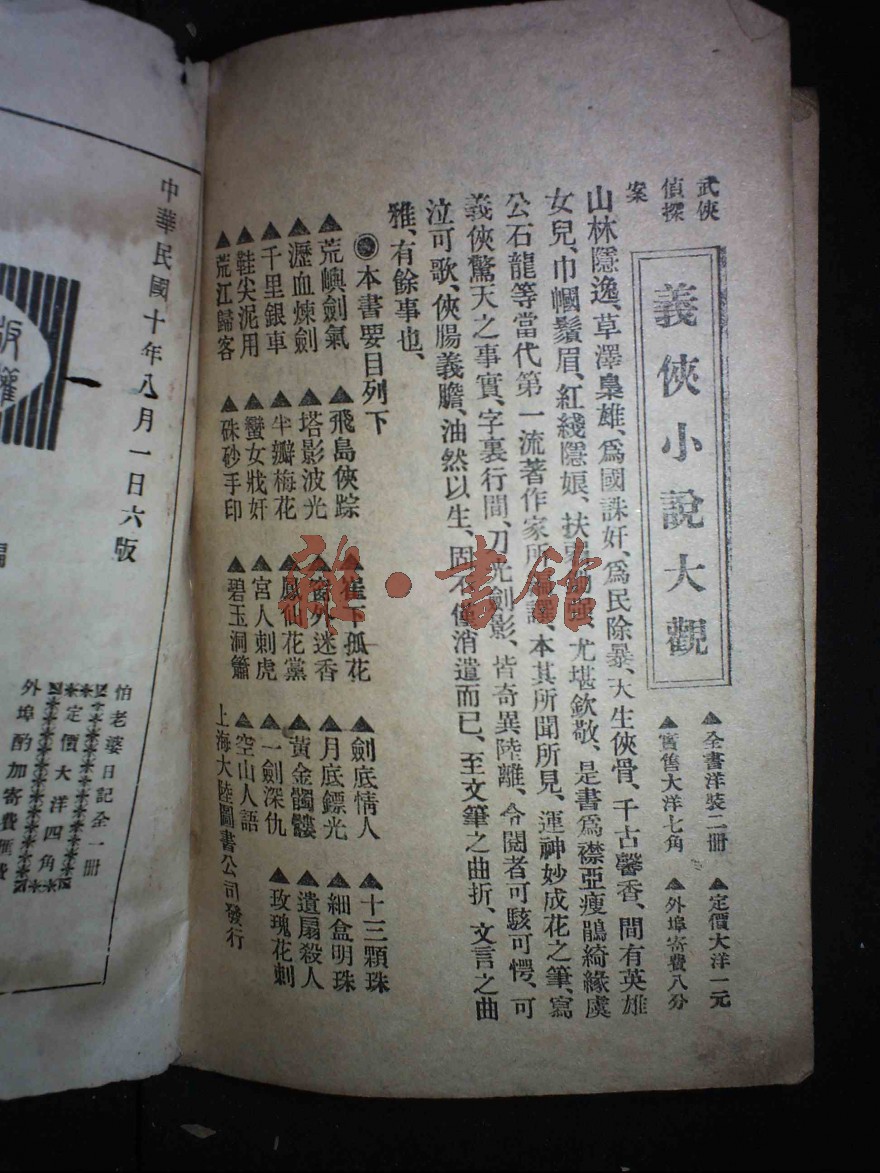 武俠
偵探
案
義俠小說大觀
▲全書洋裝二冊 ▲定價大洋一元
▲實售大洋七角 ▲外埠寄費八分
山林隱逸、草澤梟雄、爲國誅奸、爲民除暴、天生俠骨、千古馨香、間有英雄
女兒、巾幗鬚眉、紅綫隱娘、扶 尤堪欽敬、是書爲襟亞瘦鵑綺緣虞
公石龍等當代第一流著作家所編譯、本其所聞所見、運神妙成花之筆、寫
義俠驚天之事實、字裏行間、刀光劍影、皆奇異陸離、令閱者可駭可愕、可
泣可歌、俠腸義膽、油然以生、固不僅消遣而已、至文筆之曲折、文言之曲
雅、有餘事也、
◉本書要目列下
▲荒嶼劍氣 ▲飛島俠踪 ▲崔下孤花 ▲劍底情人 ▲十三顆珠
▲瀝血煉劍 ▲塔影波光 ▲窗外迷香 ▲月底鏢光 ▲細盒明珠
▲千里銀車 ▲半瓣梅花 ▲鳳仙花黨 ▲黃金髑髏 ▲遺扇殺人
▲鞋尖泥用 ▲蠻女戕奸 ▲宮人刺虎 ▲一劍深仇 ▲玫瑰花刺
▲荒江歸客 ▲硃砂手印 ▲碧玉洞簫 ▲空山人語
上海大陸圖書公司發行
中華民國十年八月一日六版
版權
怕老婆日記全一冊
定價大洋四角
外埠酌加寄費匯費
雜·書館